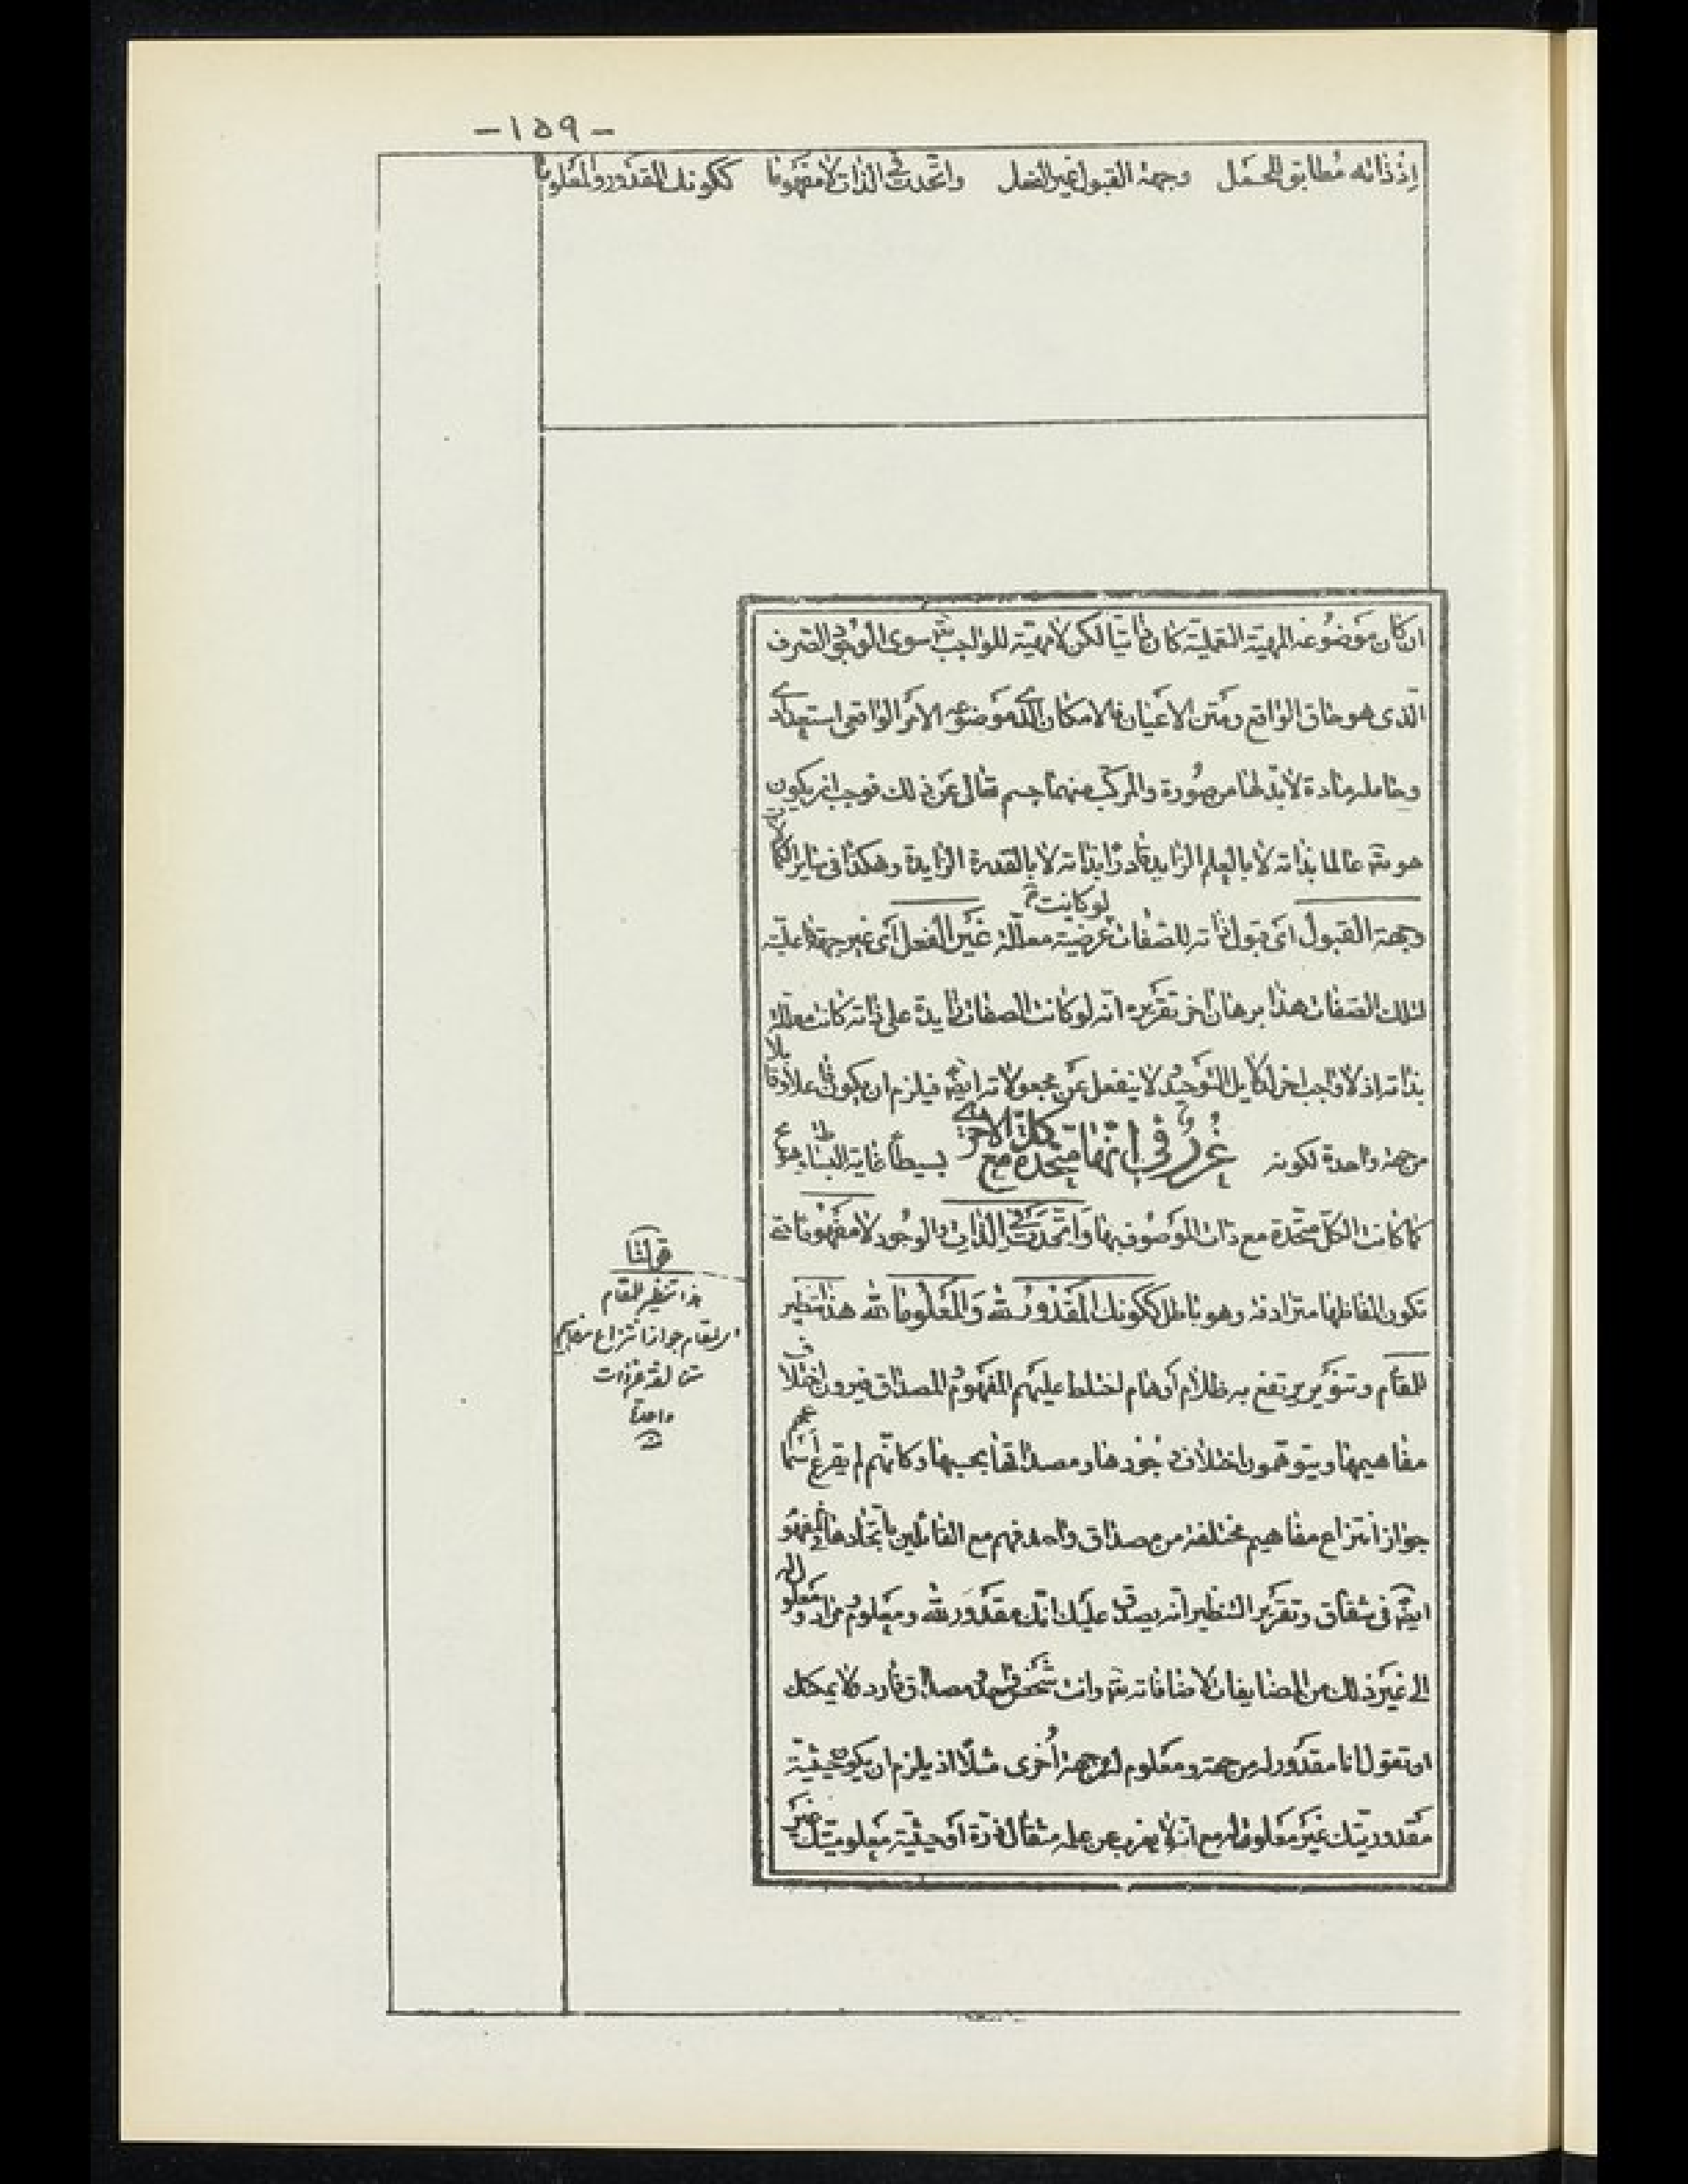 -١٥٩-
إذ ذاته مطابق للحمل وجهة القبول غير الفعل واتحدت في الذات لا مفهوما ككونك المقدور والمعلوما
ان كان موضوعه المهية التعملية كان ذاتيا لكن لا مهية للواجب تع سوى الوجود الصرف
الذى هو حاق الواقع ومتن الاعيان فالامكان الذى موضوعه الامر الواقعى استعدادى
وحامله مادة لا بد لها من صورة والمركب منهما جسم تعالى عن ذلك فوجب ان يكون
هو تع عالما بذاته لا بالعلم الزايد قادرا بذاته لا بالقدرة الزايدة وهكذا فى ساير الكمالات
وجهة القبول اى قبول ذاته للصفات لو كانت عرضية معللة غير الفعل اى غير جهة فاعليته
لتلك الصفات هذا برهان اخر تقريره انه لو كانت الصفات زايدة على ذاته كانت معللة
بذاته اذ لا واجب اخر لدلايل التوحيد ولا ينفعل عن مجعولاته ايضا فيلزم ان يكون فاعلا وقابلا
من جهة واحدة لكونه بسيطا غاية البساطة
غرر فى انها متحدة كل مع الاخرى
كما كانت الكل متحدة مع ذات الموصوف بها واتحدت في الذات والوجود لا مفهوما حتى
تكون الفاظها مترادفة وهو باطل ككونك المقدور لله والمعلوما لله هذا تنظير
للمقام وتنوير يرتفع به ظلام اوهام اختلط عليهم المفهوم المصداق فيرون اختلاف
مفاهيمها ويتوهمون اختلاف وجودها ومصداقها بحسبها وكانهم لم يقرع اسماعهم
جواز انتزاع مفاهيم مختلفة من مصداق واحد فهم مع القائلين باتحادها فى المفهوم
ايضا فى شقاق وتقرير التنظير انه يصدق عليك انك مقدور لله ومعلوم مراد ومعلول له
الى غير ذلك من المضايفات لاضافاته تع وانت شخص واحد مصداق فارد ولا يمكنك
ان تقول انا مقدور له من جهة ومعلوم له من جهة اخرى مثلا اذ يلزم ان يكون حيثية
مقدوريتك غير معلومة له مع انه لا يعزب عن علمه مثقال ذرة او حيثية معلوميتك غير
قولنا
هذا تنظير للمقام
اى لمقام جواز انتزاع مفاهيم
متخالفة عن ذات
واحدة